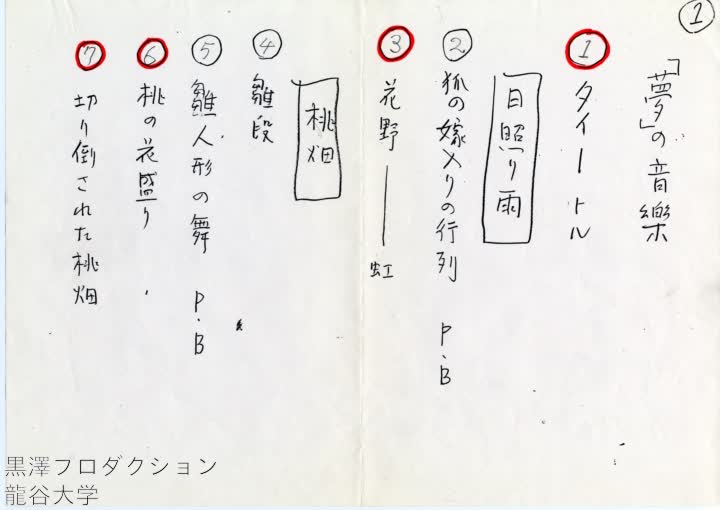 ①
「夢」の音樂
① タイートル
日照り雨
② 狐の嫁入りの行列 P.B
③ 花野 ── 虹
桃畑
④ 雛段
⑤ 雛人形の舞 P.B
⑥ 桃の花盛り
⑦ 切り倒された桃畑
黒澤フロダクション
龍谷大学